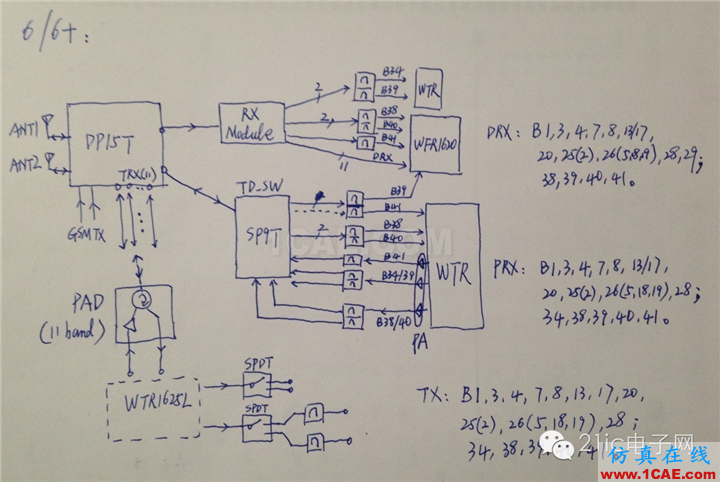 6/6+:
ANT1
ANT2
DP15T
TRX(11)
GSMTX
RX
Module
2
2
11
DRX
B34
B39
WTR
B38
B40
B41
WFR1620
TD_SW
SP9T
2
B39
B41
B38
B40
B41
B34/39
B38/40
WTR
PA
PAD
(11 band)
WTR1625L
SPDT
SPDT
DRX: B1,3,4,7,8,13/17,
20,25(2),26(5,18,9),28,29;
38,39,40,41.
PRX: B1,3,4,7,8,13/17,
20,25(2),26(5,18,19),28;
34,38,39,40,41.
TX: B1,3,4,7,8,13,17,20,
25(2),26(5,18,19),28;
34,38,39
1CAE.COM
21ic电子网
仿真在线
www.1CAE.com